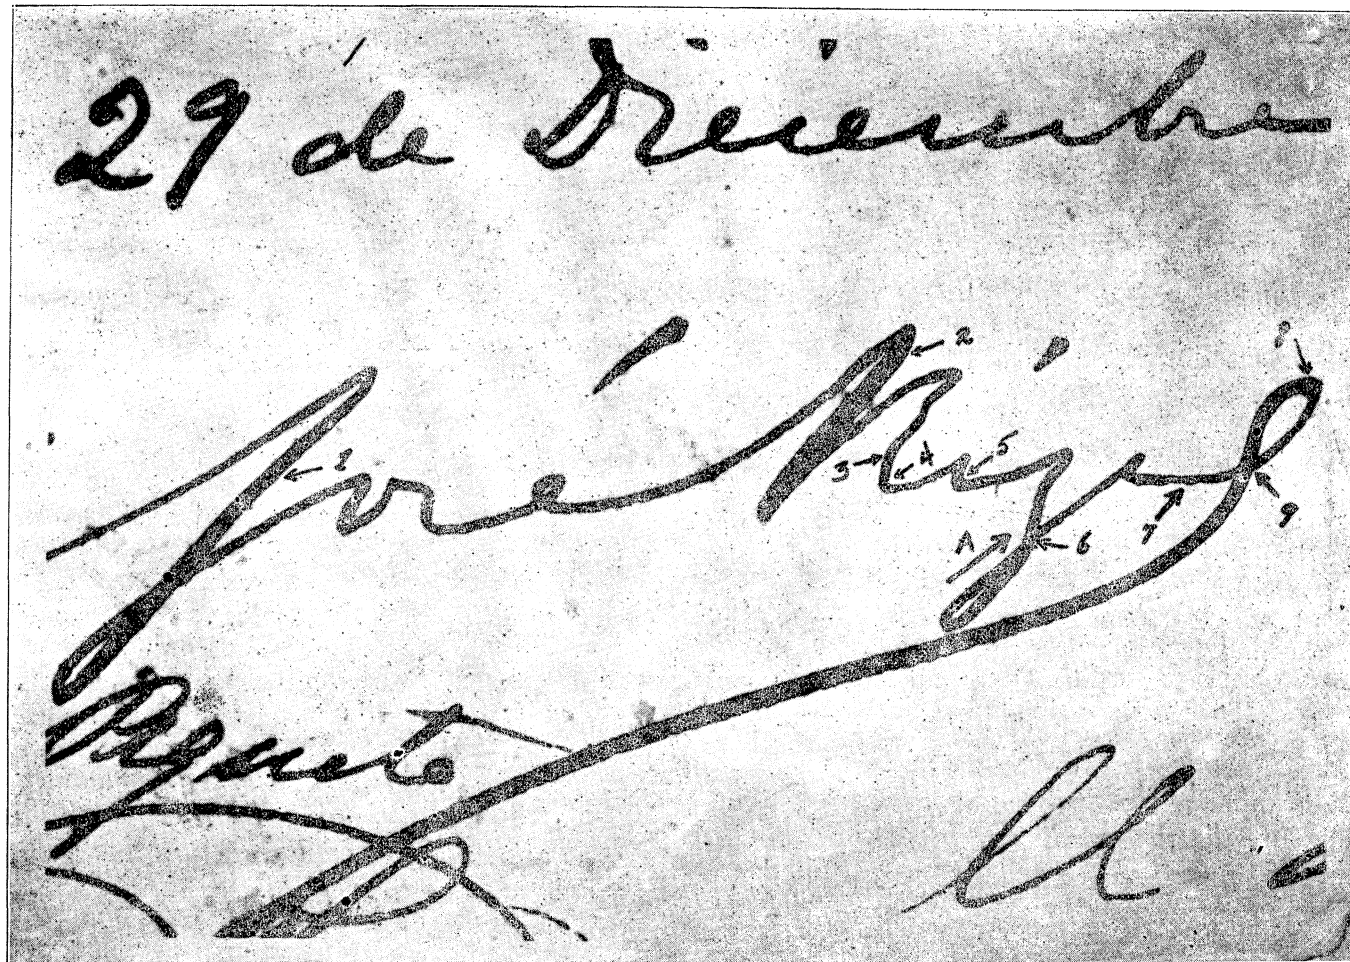 29 de Diciembre
José Rizal
1 2 3 4 5 6 7 8 9 A